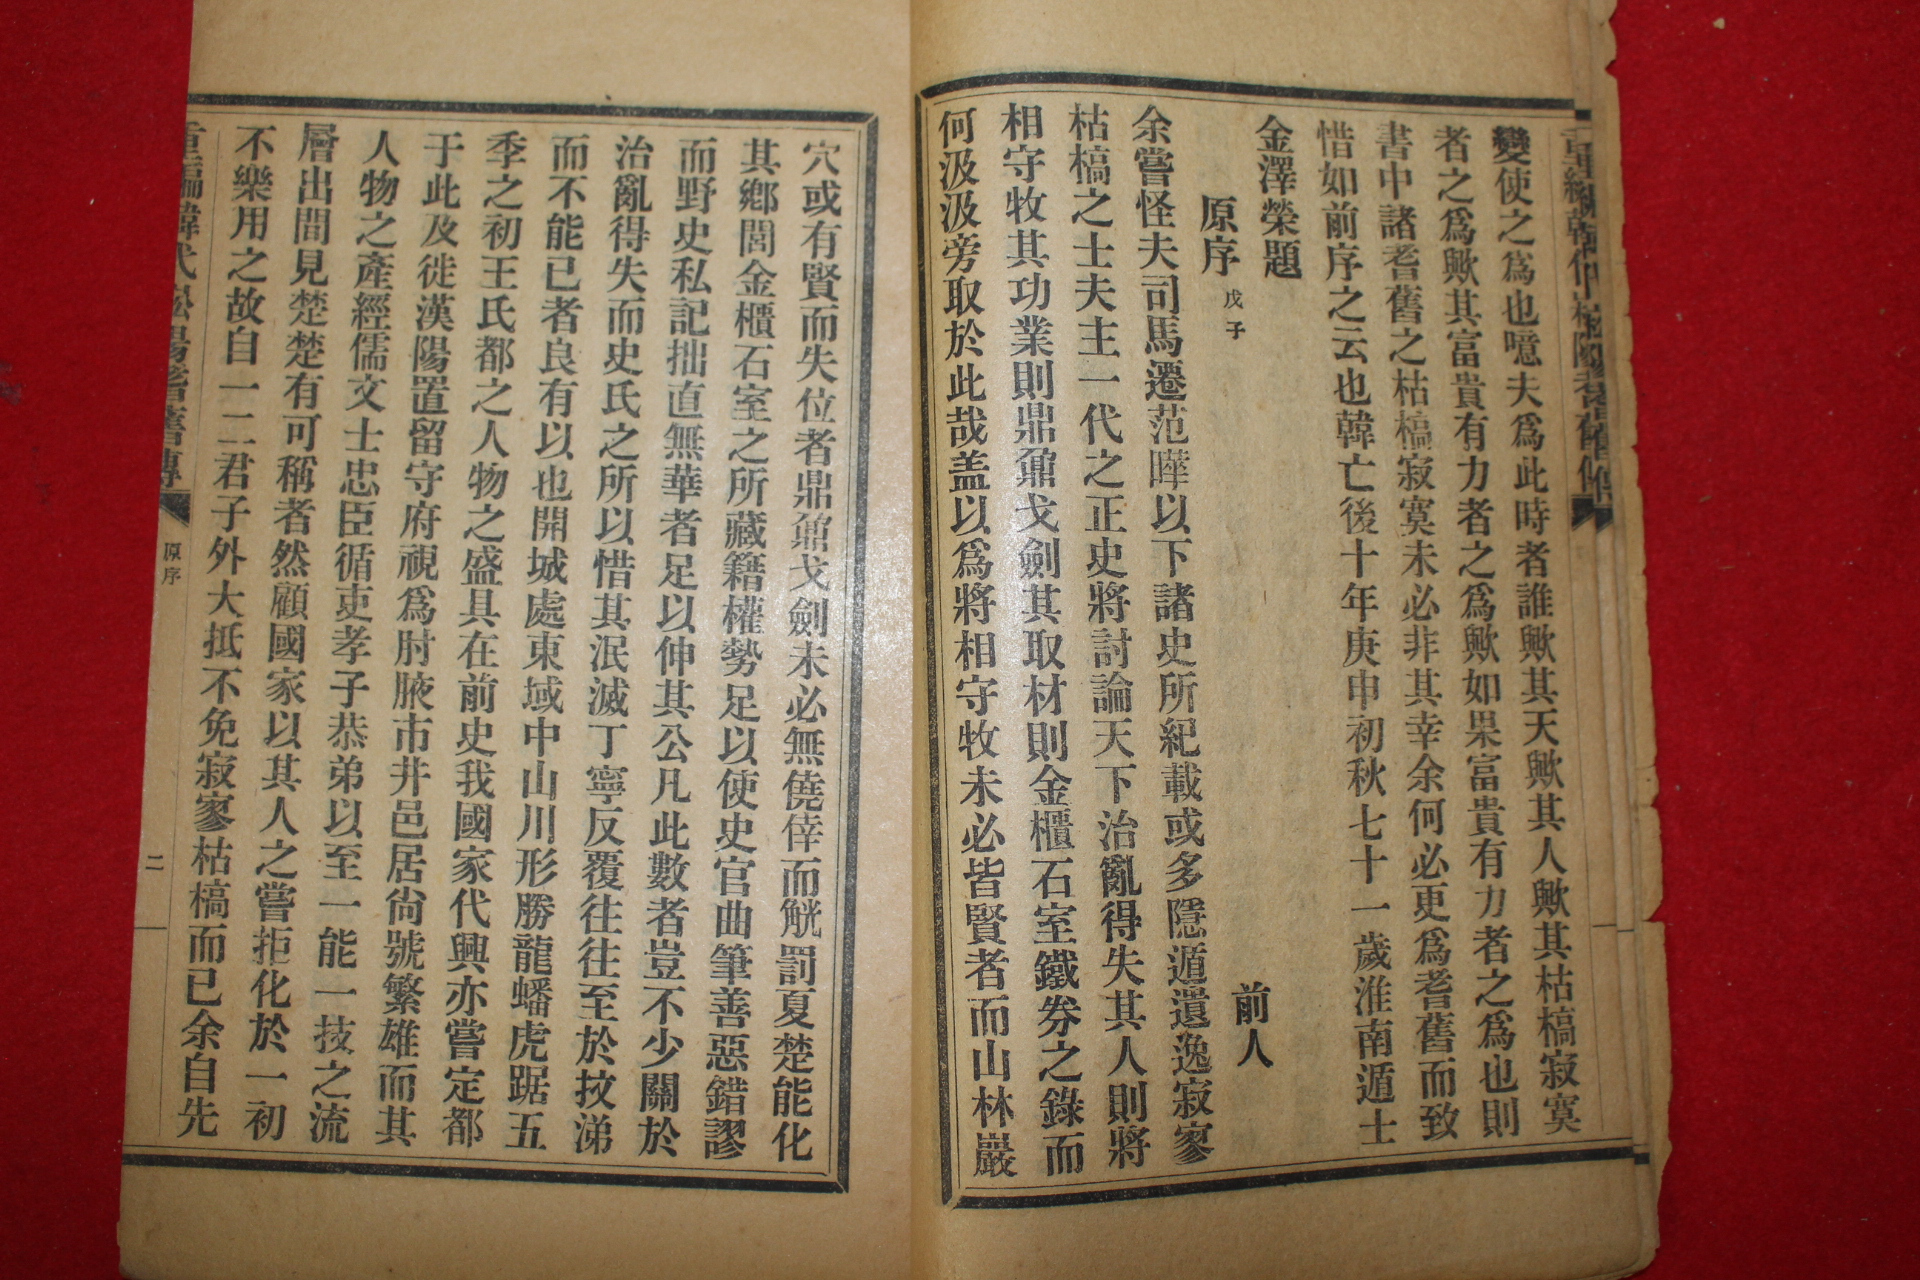 重編韓代崧陽耆舊傳
變使之爲也噫夫爲此時者誰歟其天歟其人歟其枯槁寂寞
者之爲歟其富貴有力者之爲歟如果富貴有力者之爲也則
書中諸耆舊之枯槁寂寞未必非其幸余何必更爲耆舊而致
惜如前序之云也韓亡後十年庚申初秋七十一歲淮南遁士
金澤榮題
原序 戊子 前人
余嘗怪夫司馬遷范曄以下諸史所紀載或多隱遁遺逸寂寥
枯槁之士夫主一代之正史將討論天下治亂得失其人則將
相守牧其功業則鼎鼐戈劍其取材則金櫃石室鐵券之錄而
何汲汲旁取於此哉盖以爲將相守牧未必皆賢者而山林巖
穴或有賢而失位者鼎鼐戈劍未必無僥倖而觥罰夏楚能化
其鄕閭金櫃石室之所藏籍權勢足以使史官曲筆善惡錯謬
而野史私記拙直無華者足以伸其公凡此數者豈不少關於
治亂得失而史氏之所以惜其泯滅丁寧反覆往往至於抆涕
而不能已者良有以也開城處東域中山川形勝龍蟠虎踞五
季之初王氏都之人物之盛具在前史我國家代興亦嘗定都
于此及徙漢陽置留守府視爲肘腋市井邑居尙號繁雄而其
人物之產經儒文士忠臣循吏孝子恭弟以至一能一技之流
層出間見楚楚有可稱者然顧國家以其人之嘗拒化於一初
不樂用之故自一二君子外大抵不免寂寥枯槁而已余自先
重編韓代崧陽耆舊傳 原序 二